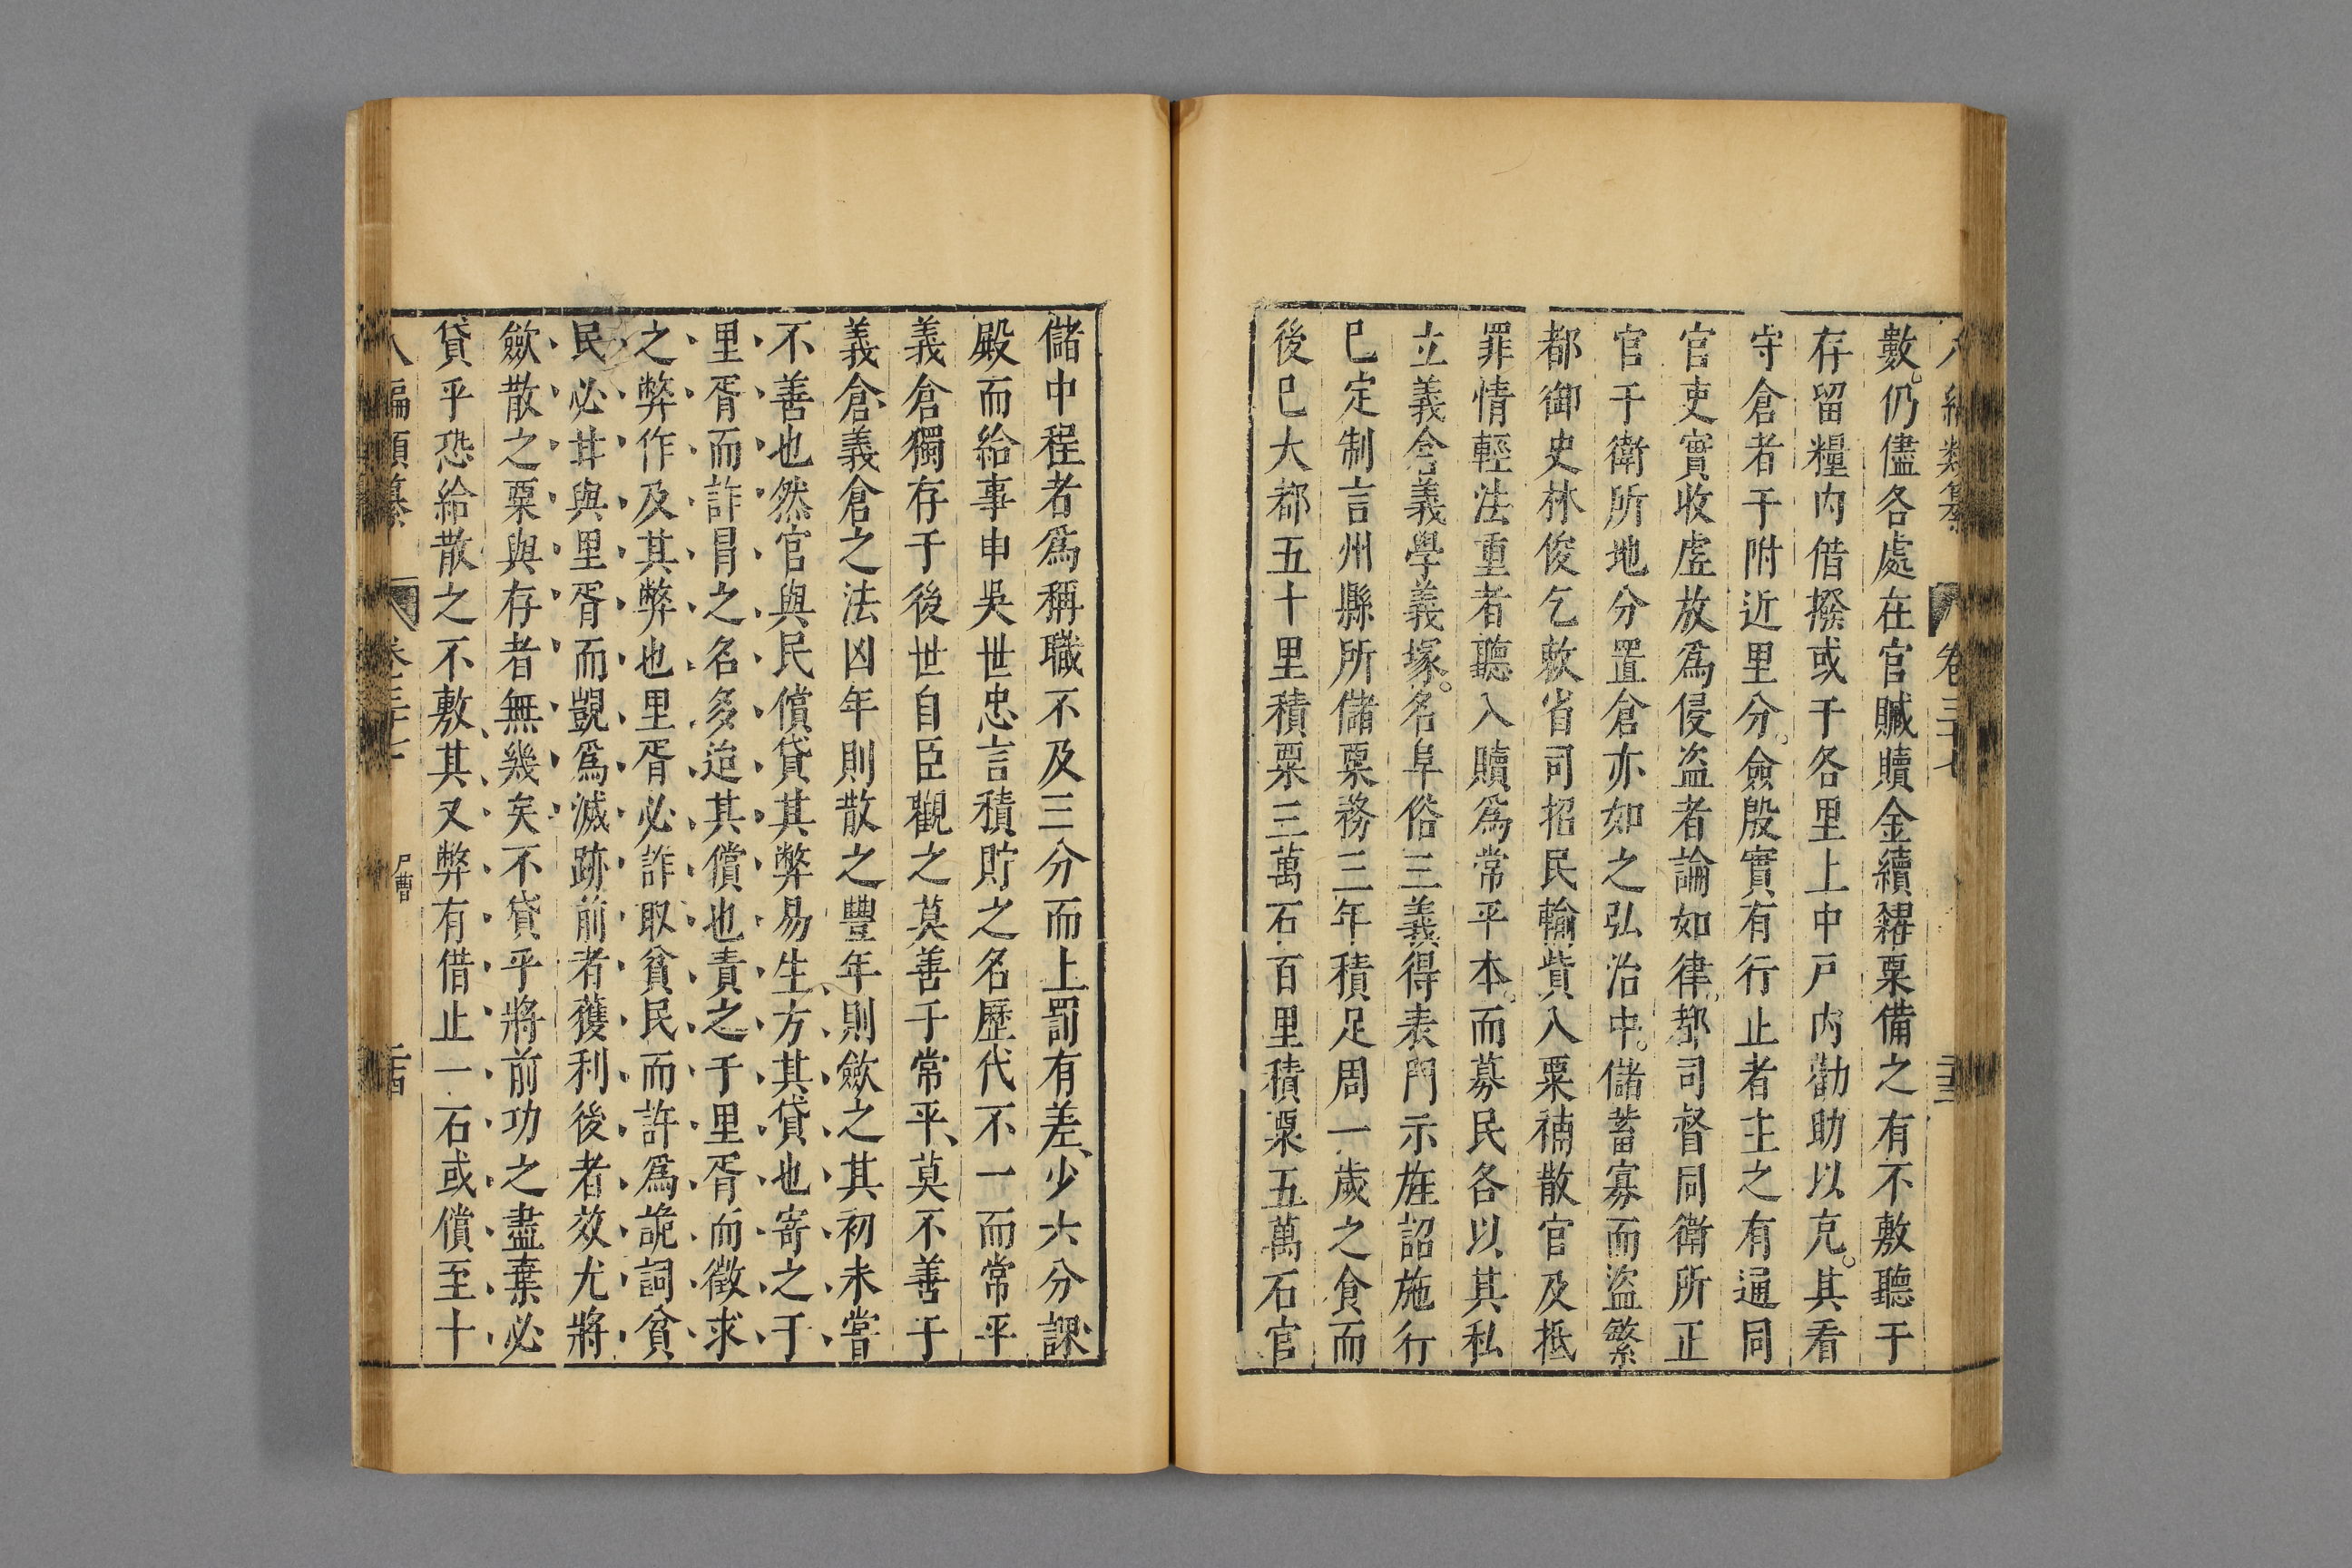 八編類纂 卷三十七 二十三
數仍儘各處在官贓贖金續糴粟備之有不敷聽于
存留糧内借撥或于各里上中戸内勸助以充其看
守倉者于附近里分僉殷實有行止者主之有通同
官吏實收虛放爲侵盗者論如律都司督同衛所正
官于衛所地分置倉亦如之弘治中儲蓄寡而盜繁
都御史林俊乞敕省司招民輸貲入粟補散官及抵
罪情輕法重者聽入贖爲常平本而募民各以其私
立義倉義學義塚名阜俗三義得表門示旌詔施行
已定制言州縣所儲粟務三年積足周一歲之食而
後已大都五十里積粟三萬石百里積粟五萬石官
儲中程者爲稱職不及三分而上罰有差少六分課
殿而給事申吳世忠言積貯之名歷代不一而常平
義倉獨存于後世自臣觀之莫善于常平莫不善于
義倉義倉之法凶年則散之豐年則斂之其初未嘗
不善也然官與民償貸其弊易生方其貸也寄之于
里胥而詐冒之名多迨其償也責之于里胥而徵求
之弊作及其弊也里胥必詐取貧民而許爲詭詞貧
民必甘與里胥而覬爲滅跡前者獲利後者效尤將
斂散之粟與存者無幾矣不貸乎將前功之盡棄必
貸乎恐給散之不敷其又弊有借止一石或償至十
八編類纂 卷三十七 戸曹 二十四